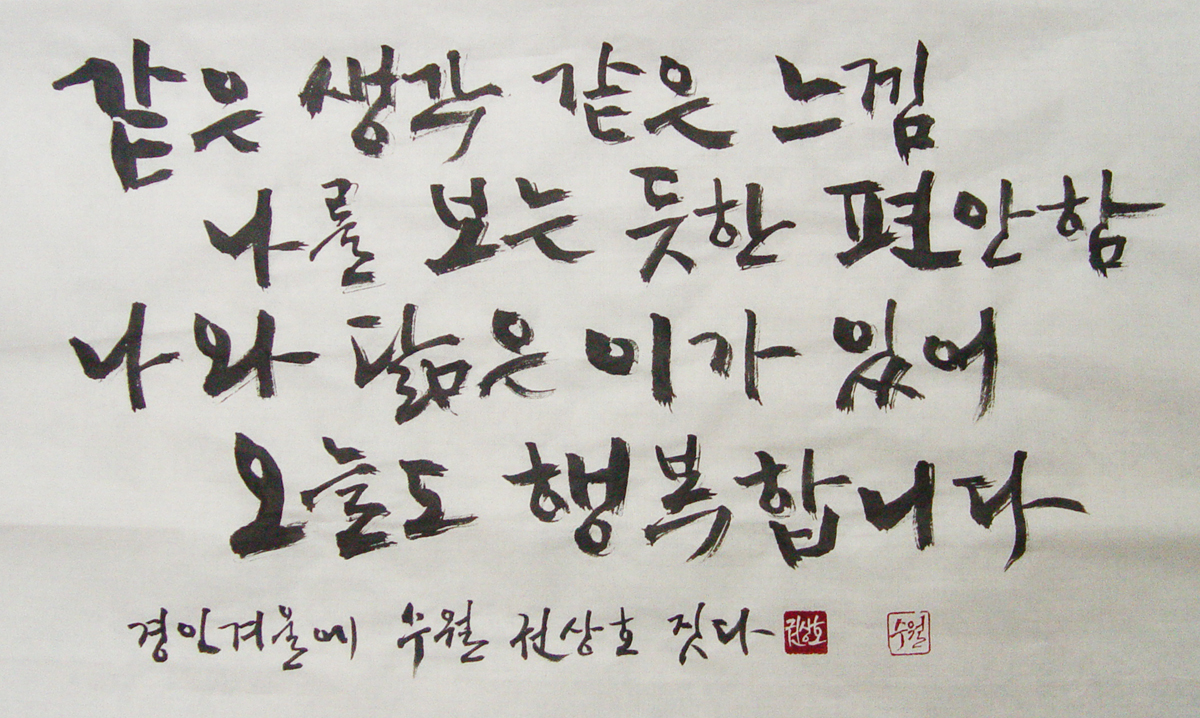 같은 생각 같은 느낌
나를 보는 듯한 편안함
나와 닮은 이가 있어
오늘도 행복합니다
경인겨울에 수월 권상호 짓다
권상호
수월